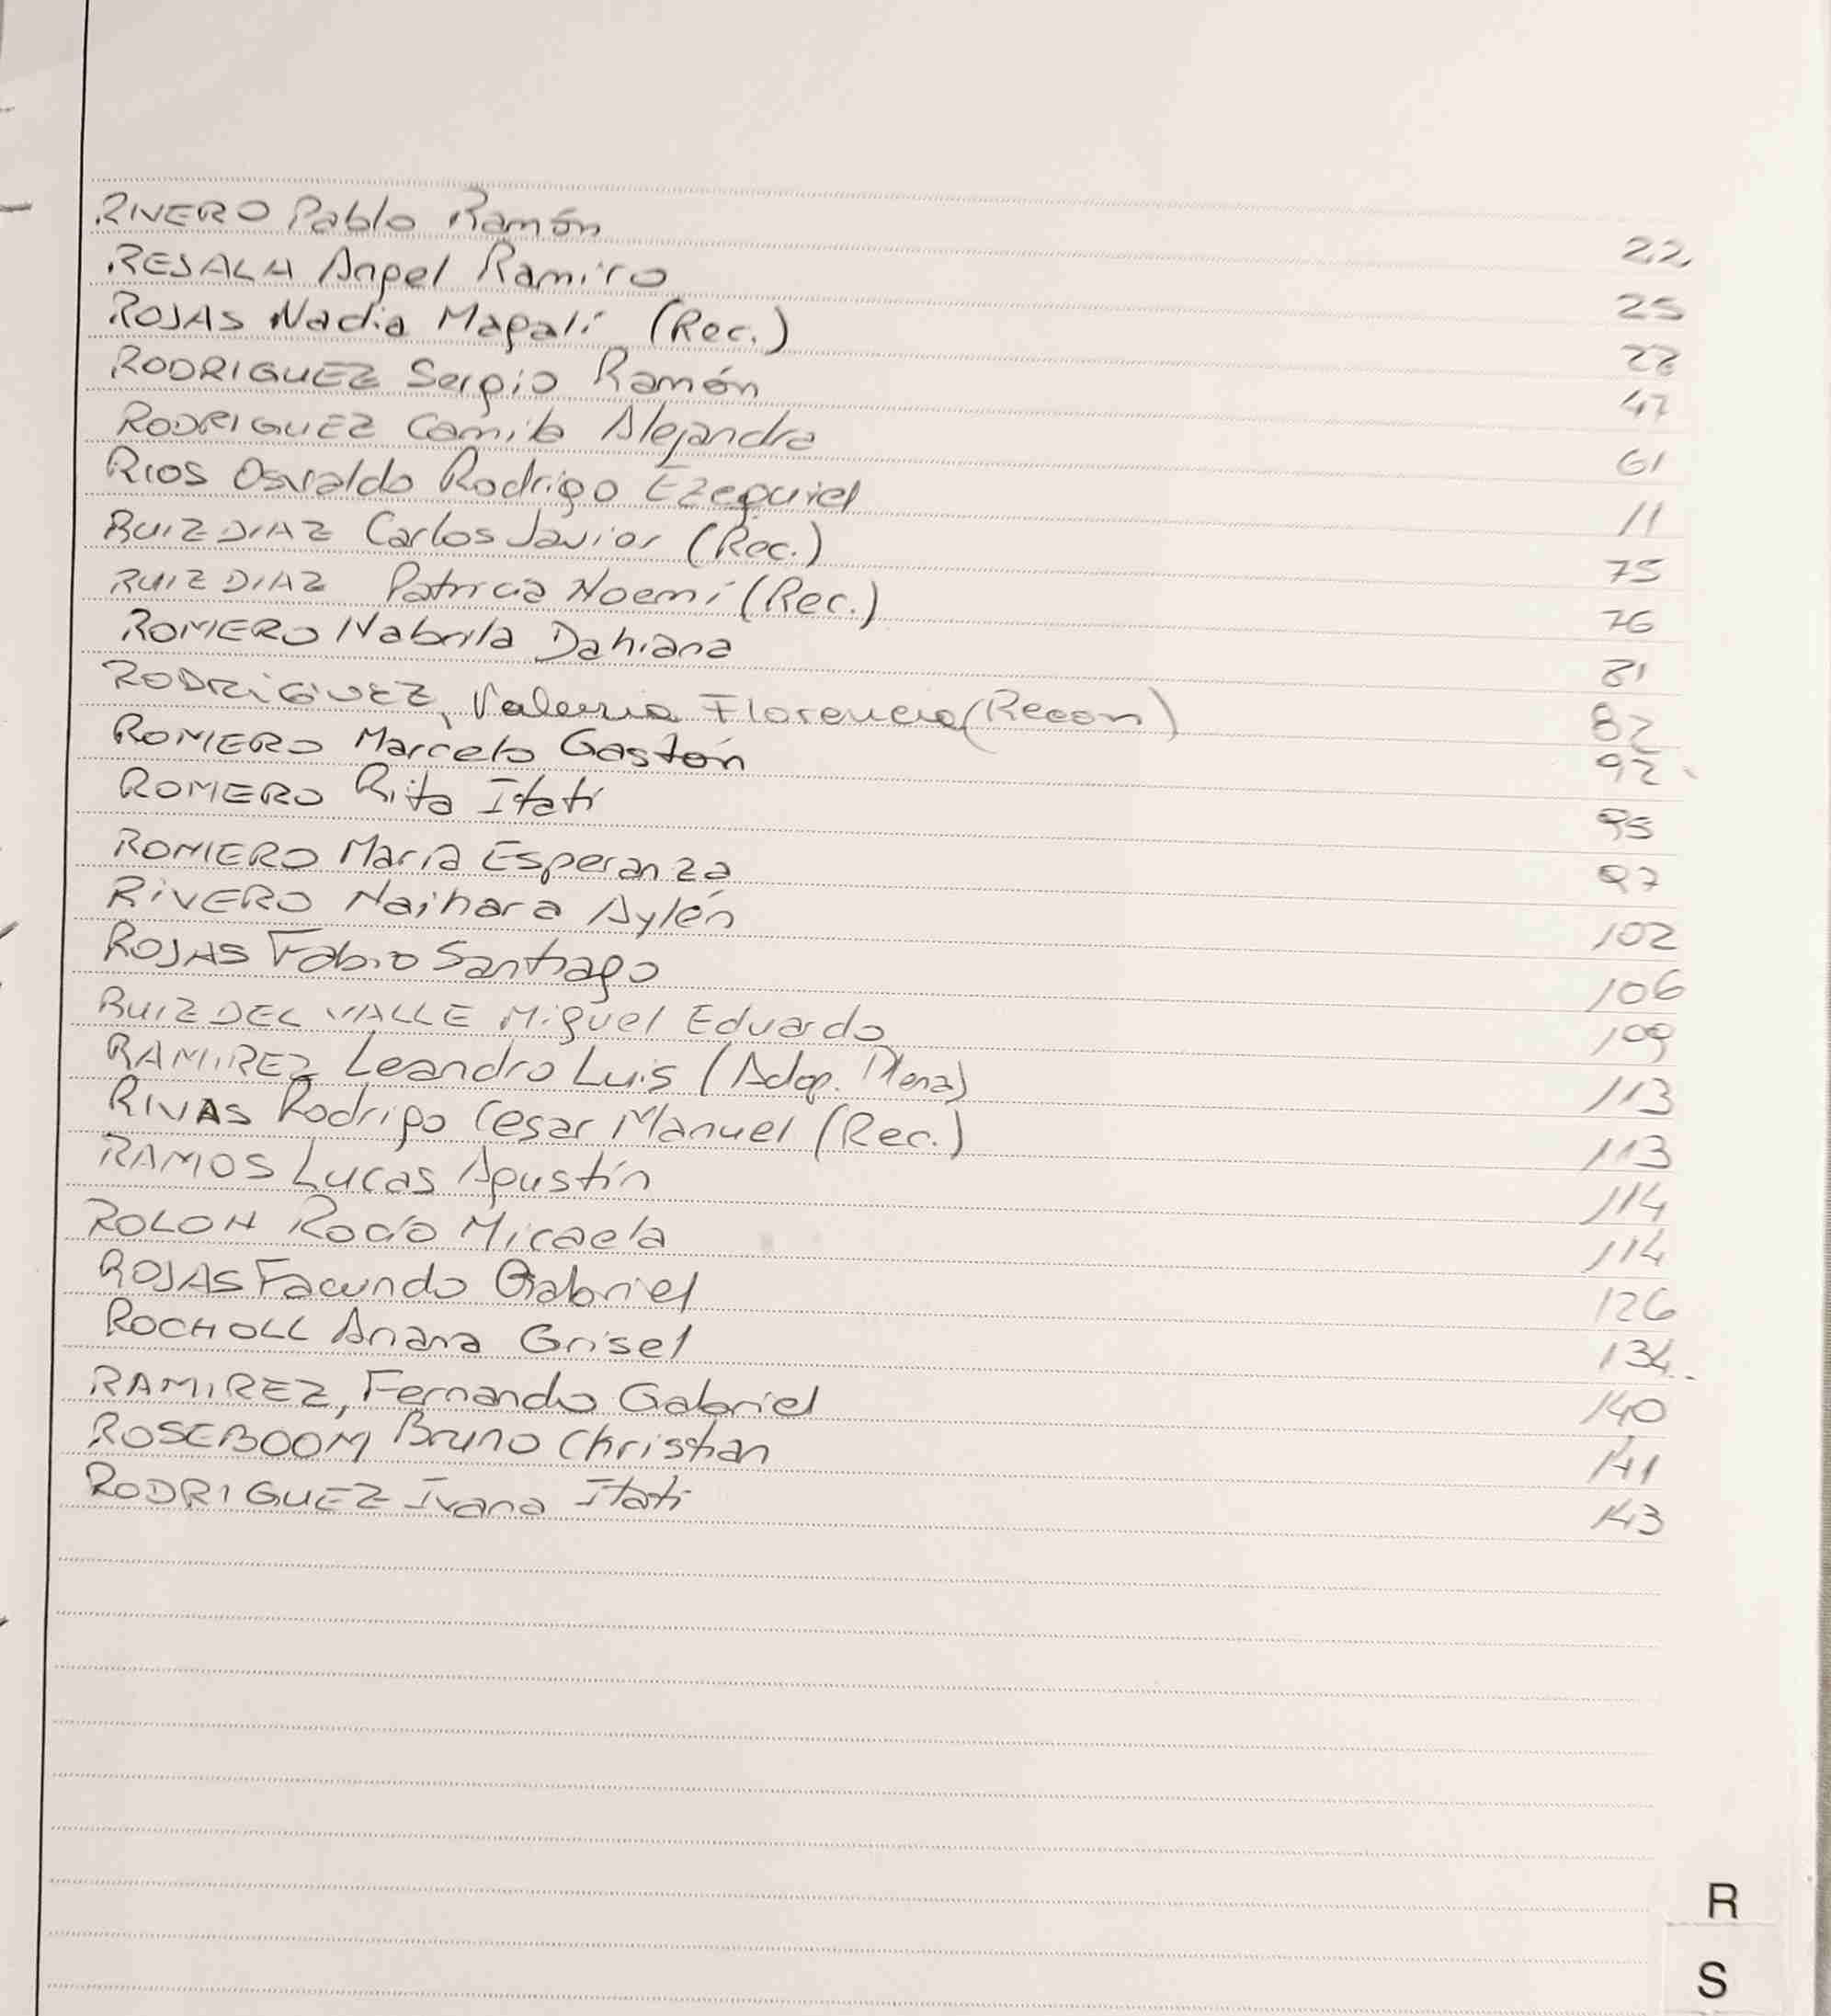 RIVERO Pablo Ramón 22
RESALA Angel Ramiro 25
ROJAS Nadia Magalí (Rec.)
RODRIGUEZ Sergio Ramón 47
RODRIGUEZ Camila Alejandra 61
RIOS Osvaldo Rodrigo Ezequiel 11
RUIZ DIAZ Carlos Javier (Rec.) 75
RUIZ DIAZ Patricia Noemí (Rec.) 76
ROMERO Nabrila Dahiana 81
RODRIGUEZ, Valeria Florencia (Recon) 82
ROMERO Marcelo Gastón 92
ROMERO Rita Itatí 95
ROMERO María Esperanza 97
RIVERO Naihara Aylén 102
ROJAS Fabio Santiago 106
RUIZ DEL VALLE Miguel Eduardo 109
RAMIREZ Leandro Luis (Adop. Plena) 113
RIVAS Rodrigo Cesar Manuel (Rec.) 113
RAMOS Lucas Agustín 114
ROLON Rocío Micaela 114
ROJAS Facundo Gabriel 126
ROCHOLL Ariana Grisel 134
RAMIREZ, Fernando Gabriel 140
ROSEBOOM Bruno Christian 141
RODRIGUEZ Ivana Itatí 143
R
S